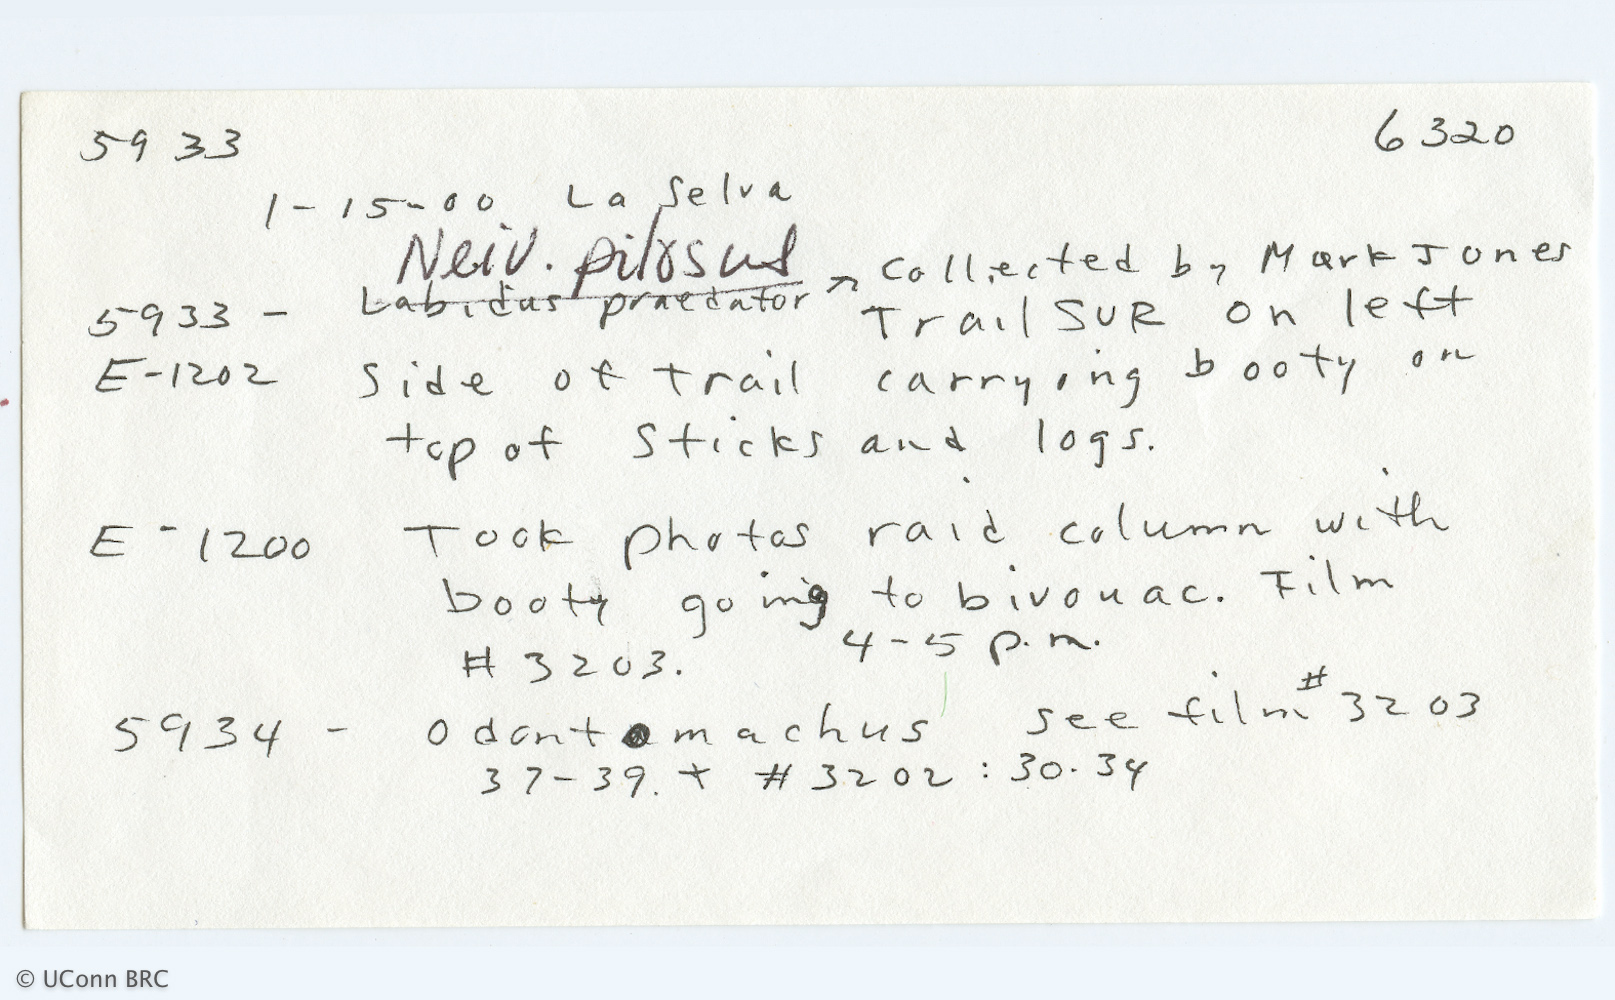 5933 6320
1-15-00 La Selva
Neiv. pilosus
5933 - Labidus praedator Collected by Mark Jones
Trail SUR on left
E-1202 side of trail carrying booty on
top of sticks and logs.
E-1200 Took photos raid column with
booty going to bivouac. Film
# 3203. 4-5 p.m.
5934 - Odontomachus see film # 3203
37-39. + # 3202 : 30-34
© UConn BRC